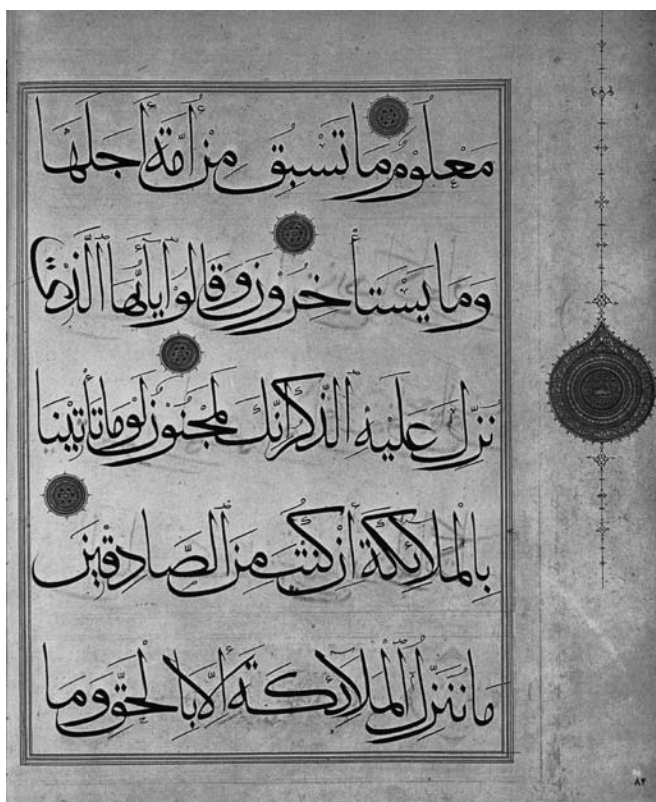 مَعْلُومٌ مَا تَسْبِقُ مِنْ أُمَّةٍ أَجَلَهَا
وَمَا يَسْتَأْخِرُونَ وَقَالُوا يَا أَيُّهَا الَّذِي
نُزِّلَ عَلَيْهِ الذِّكْرُ إِنَّكَ لَمَجْنُونٌ لَوْ مَا تَأْتِينَا
بِالْمَلَائِكَةِ إِنْ كُنْتَ مِنَ الصَّادِقِينَ
مَا نُنَزِّلُ الْمَلَائِكَةَ إِلَّا بِالْحَقِّ وَمَا
٨٢